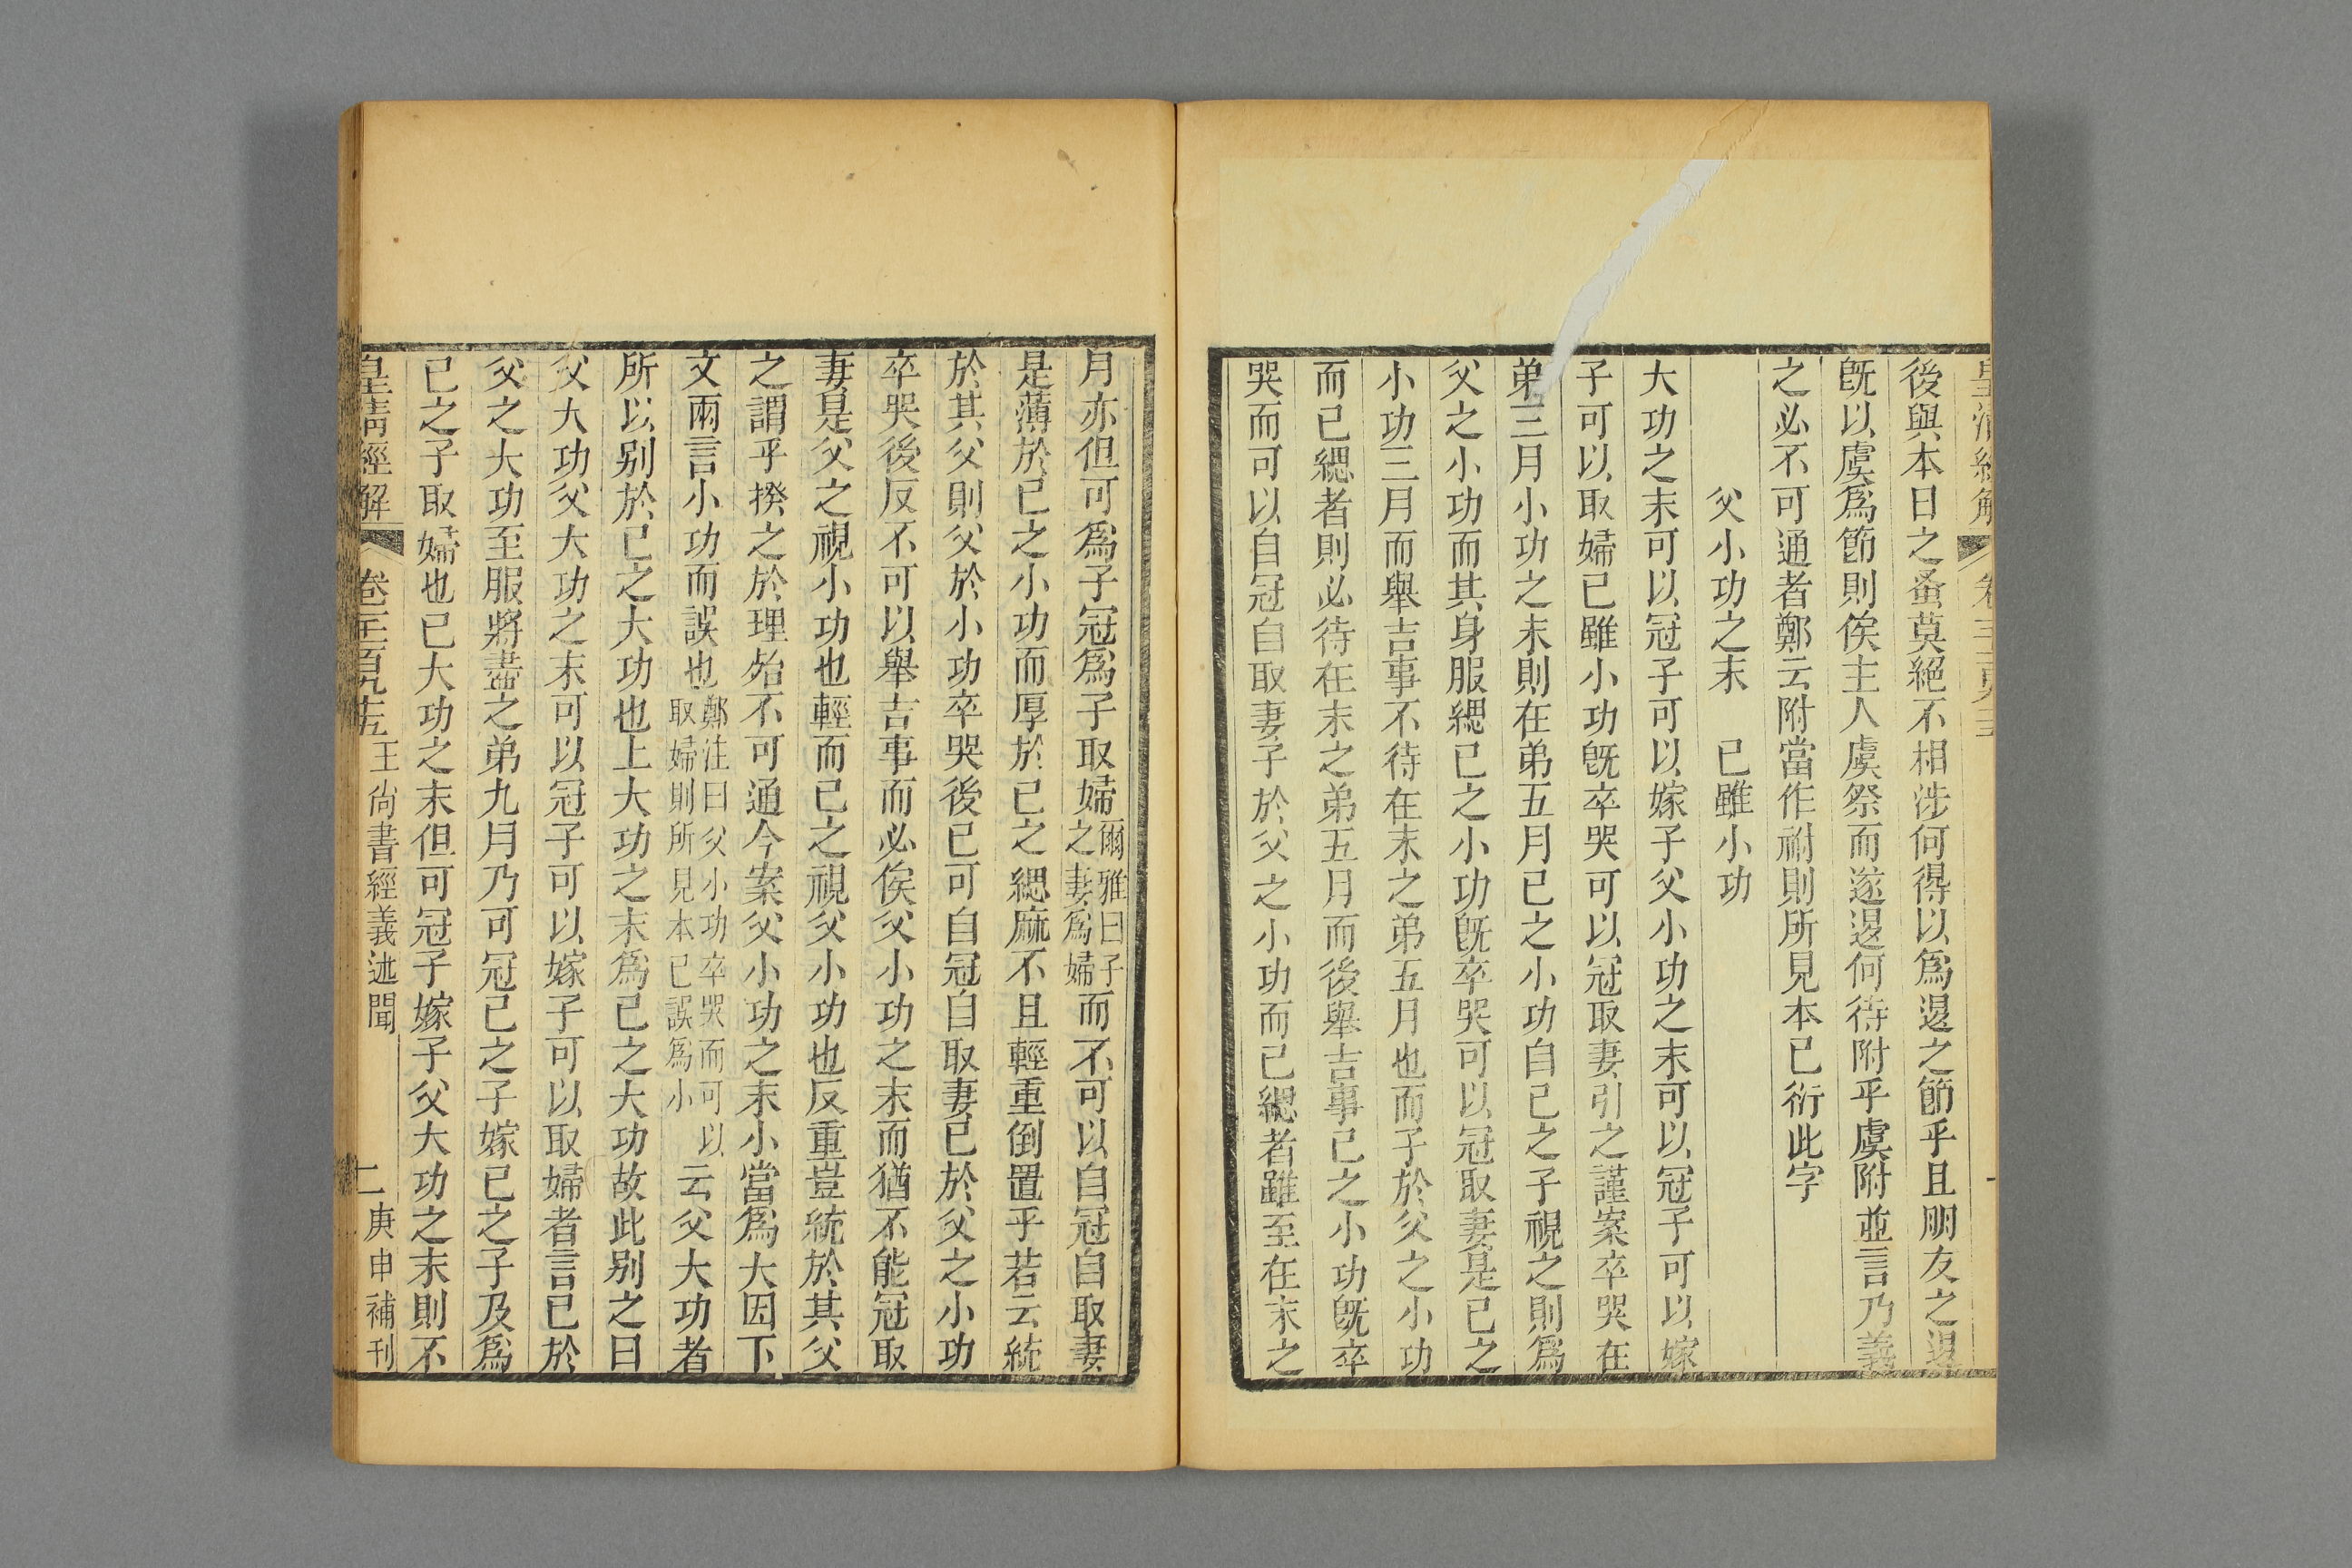 後與本日之蚤莫絕不相涉何得以爲退之節乎且朋友之退
旣以虞爲節則俟主人虞祭而遂退何待附乎虞附並言乃義
之必不可通者鄭云附當作祔則所見本已衍此字
父小功之末　已雖小功
大功之末可以冠子可以嫁子父小功之末可以冠子可以嫁
子可以取婦已雖小功旣卒哭可以冠取妻引之謹案卒哭在
弟三月小功之末則在弟五月已之小功自已之子視之則爲
父之小功而其身服緦已之小功旣卒哭可以冠取妻是已之
小功三月而舉吉事不待在末之弟五月也而子於父之小功
而已緦者則必待在末之弟五月而後舉吉事已之小功旣卒
哭而可以自冠自取妻子於父之小功而已緦者雖至在末之
月亦但可爲子冠爲子取婦爾雅曰子之妻爲婦而不可以自冠自取妻
是薄於已之小功而厚於已之緦麻不且輕重倒置乎若云統
於其父則父於小功卒哭後已可自冠自取妻已於父之小功
卒哭後反不可以舉吉事而必俟父小功之末而猶不能冠取
妻是父之視小功也輕而已之視父小功也反重豈統於其父
之謂乎揆之於理殆不可通今案父小功之末小當爲大因下
文兩言小功而誤也鄭注曰父小功卒哭而可以取婦則所見本已誤爲小云父大功者
所以别於已之大功也上大功之末爲已之大功故此别之曰
父大功父大功之末可以冠子可以嫁子可以取婦者言已於
父之大功至服將盡之弟九月乃可冠已之子嫁已之子及爲
已之子取婦也已大功之末但可冠子嫁子父大功之末則不
皇清經解　卷
王尙書經義述聞　二　庚申補刊